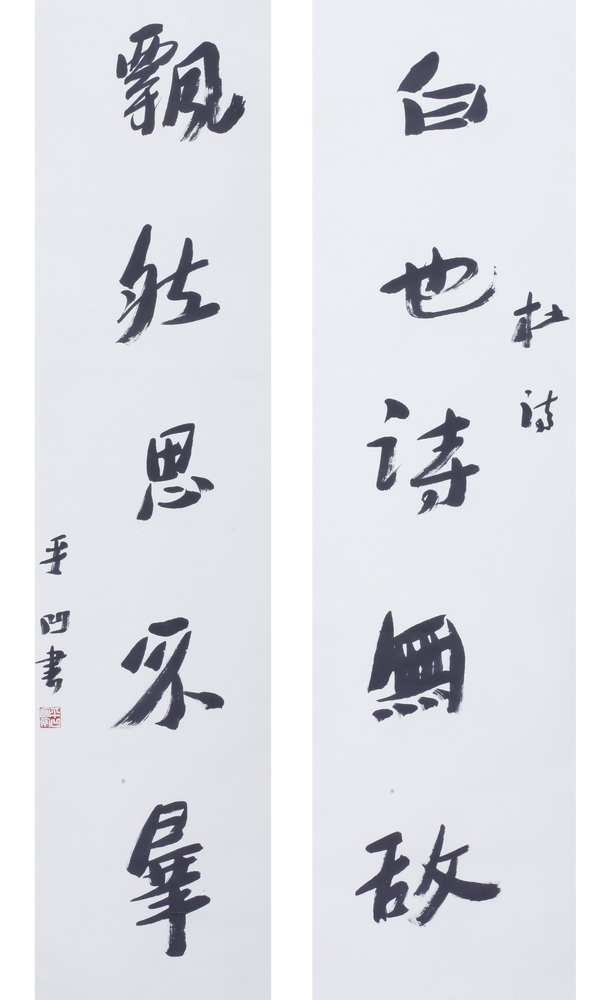 杜诗
白也诗無敌
飄然思不羣
平凹書